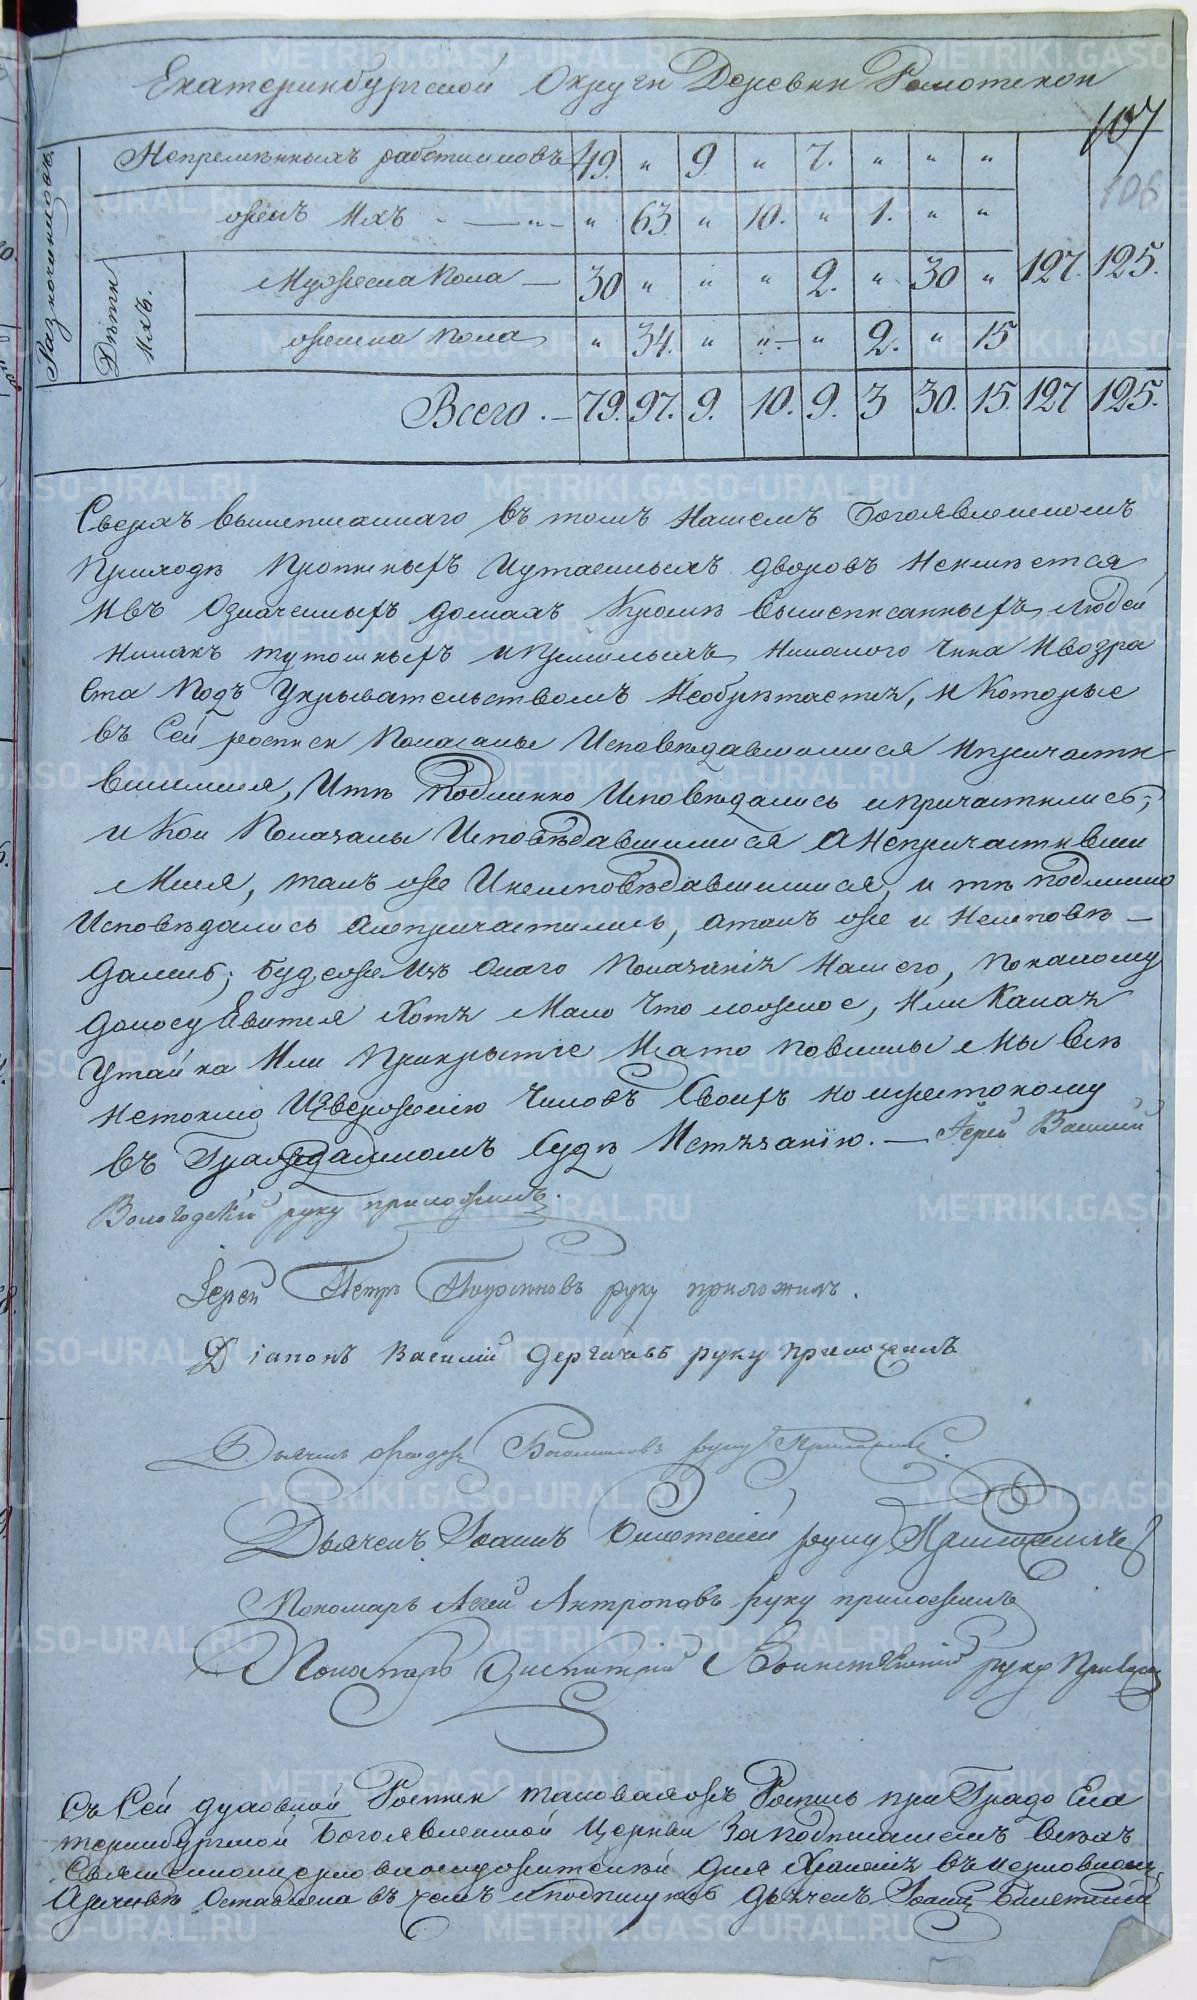 Екатеринбургской Округи Деревни Решотской
107
106
Разночинцовъ.
Непременныхъ работниковъ 49. „ 9 „ 7. „ „ „
женъ Ихъ - — „ - „ 63. „ 10. „ 1. „ „
Дѣти Ихъ.
Мужеска Пола — 30 „ „ „ 2. „ 30 „ 127. 125.
женска Пола „ 34. „ „ - „ 2. „ 15
Всего . — 79. 97. 9. 10. 9. 3 30. 15. 127 125.
Сверхъ вышеписаннаго въ томъ Нашемъ Богоявленскомъ
Приходѣ Прописныхъ Иутаенныхъ дворовъ Неимѣется
Ивъ Означенныхъ домахъ Кромѣ Вышеписанныхъ Людей
Никакъ тутошныхъ иПришлыхъ Никакого Чина Ивозра
ста Подъ Укрывательствомъ Необрѣтается, и Которые
въ Сей росписи Показаны Исповѣдавшимися ипричасти
вшимися, Итѣ Подлинно Исповѣдались ипричастились;
и Кои Показаны Исповѣдавшимися аНепричастивши
Мися, такъ же Инеисповѣдавшимися, и тѣ подлинно
Исповѣдались анепричастились, атакъ же и Неисповѣ —
дались; будеже Изъ Онаго Показанія Нашего, По какому
доносу Явится Хотя Мало Что ложное, Или Какая
Утайка Или Прикрытіе Изато Повинны Мы Всѣ
нетокмо Изверженію Чиновъ Своихъ но ижестокому
въ Гражданскомъ Судѣ Истязанію. — Іерей Василий
Вологодскій руку приложилъ.
Іерей Петръ руку приложилъ.
Діаконъ Василій Дергачовъ руку приложилъ
Дьячекъ Богомоловъ руку Приложилъ.
Дьячекъ Іоаннъ руку Приложилъ
Пономарь Антроповъ руку приложилъ
Пономарь Димитрій руку
Съ Сей духовной Росписи таковаяжъ Роспись приГрадо Ека
теринбургской Богоявленской Церкви Заподписаниемъ всѣхъ
Священноицерковнослужителей для Храненія въ церковномъ
Архивѣ Оставлена въ чемъ иподписуюсь дьячекъ Іоаннъ